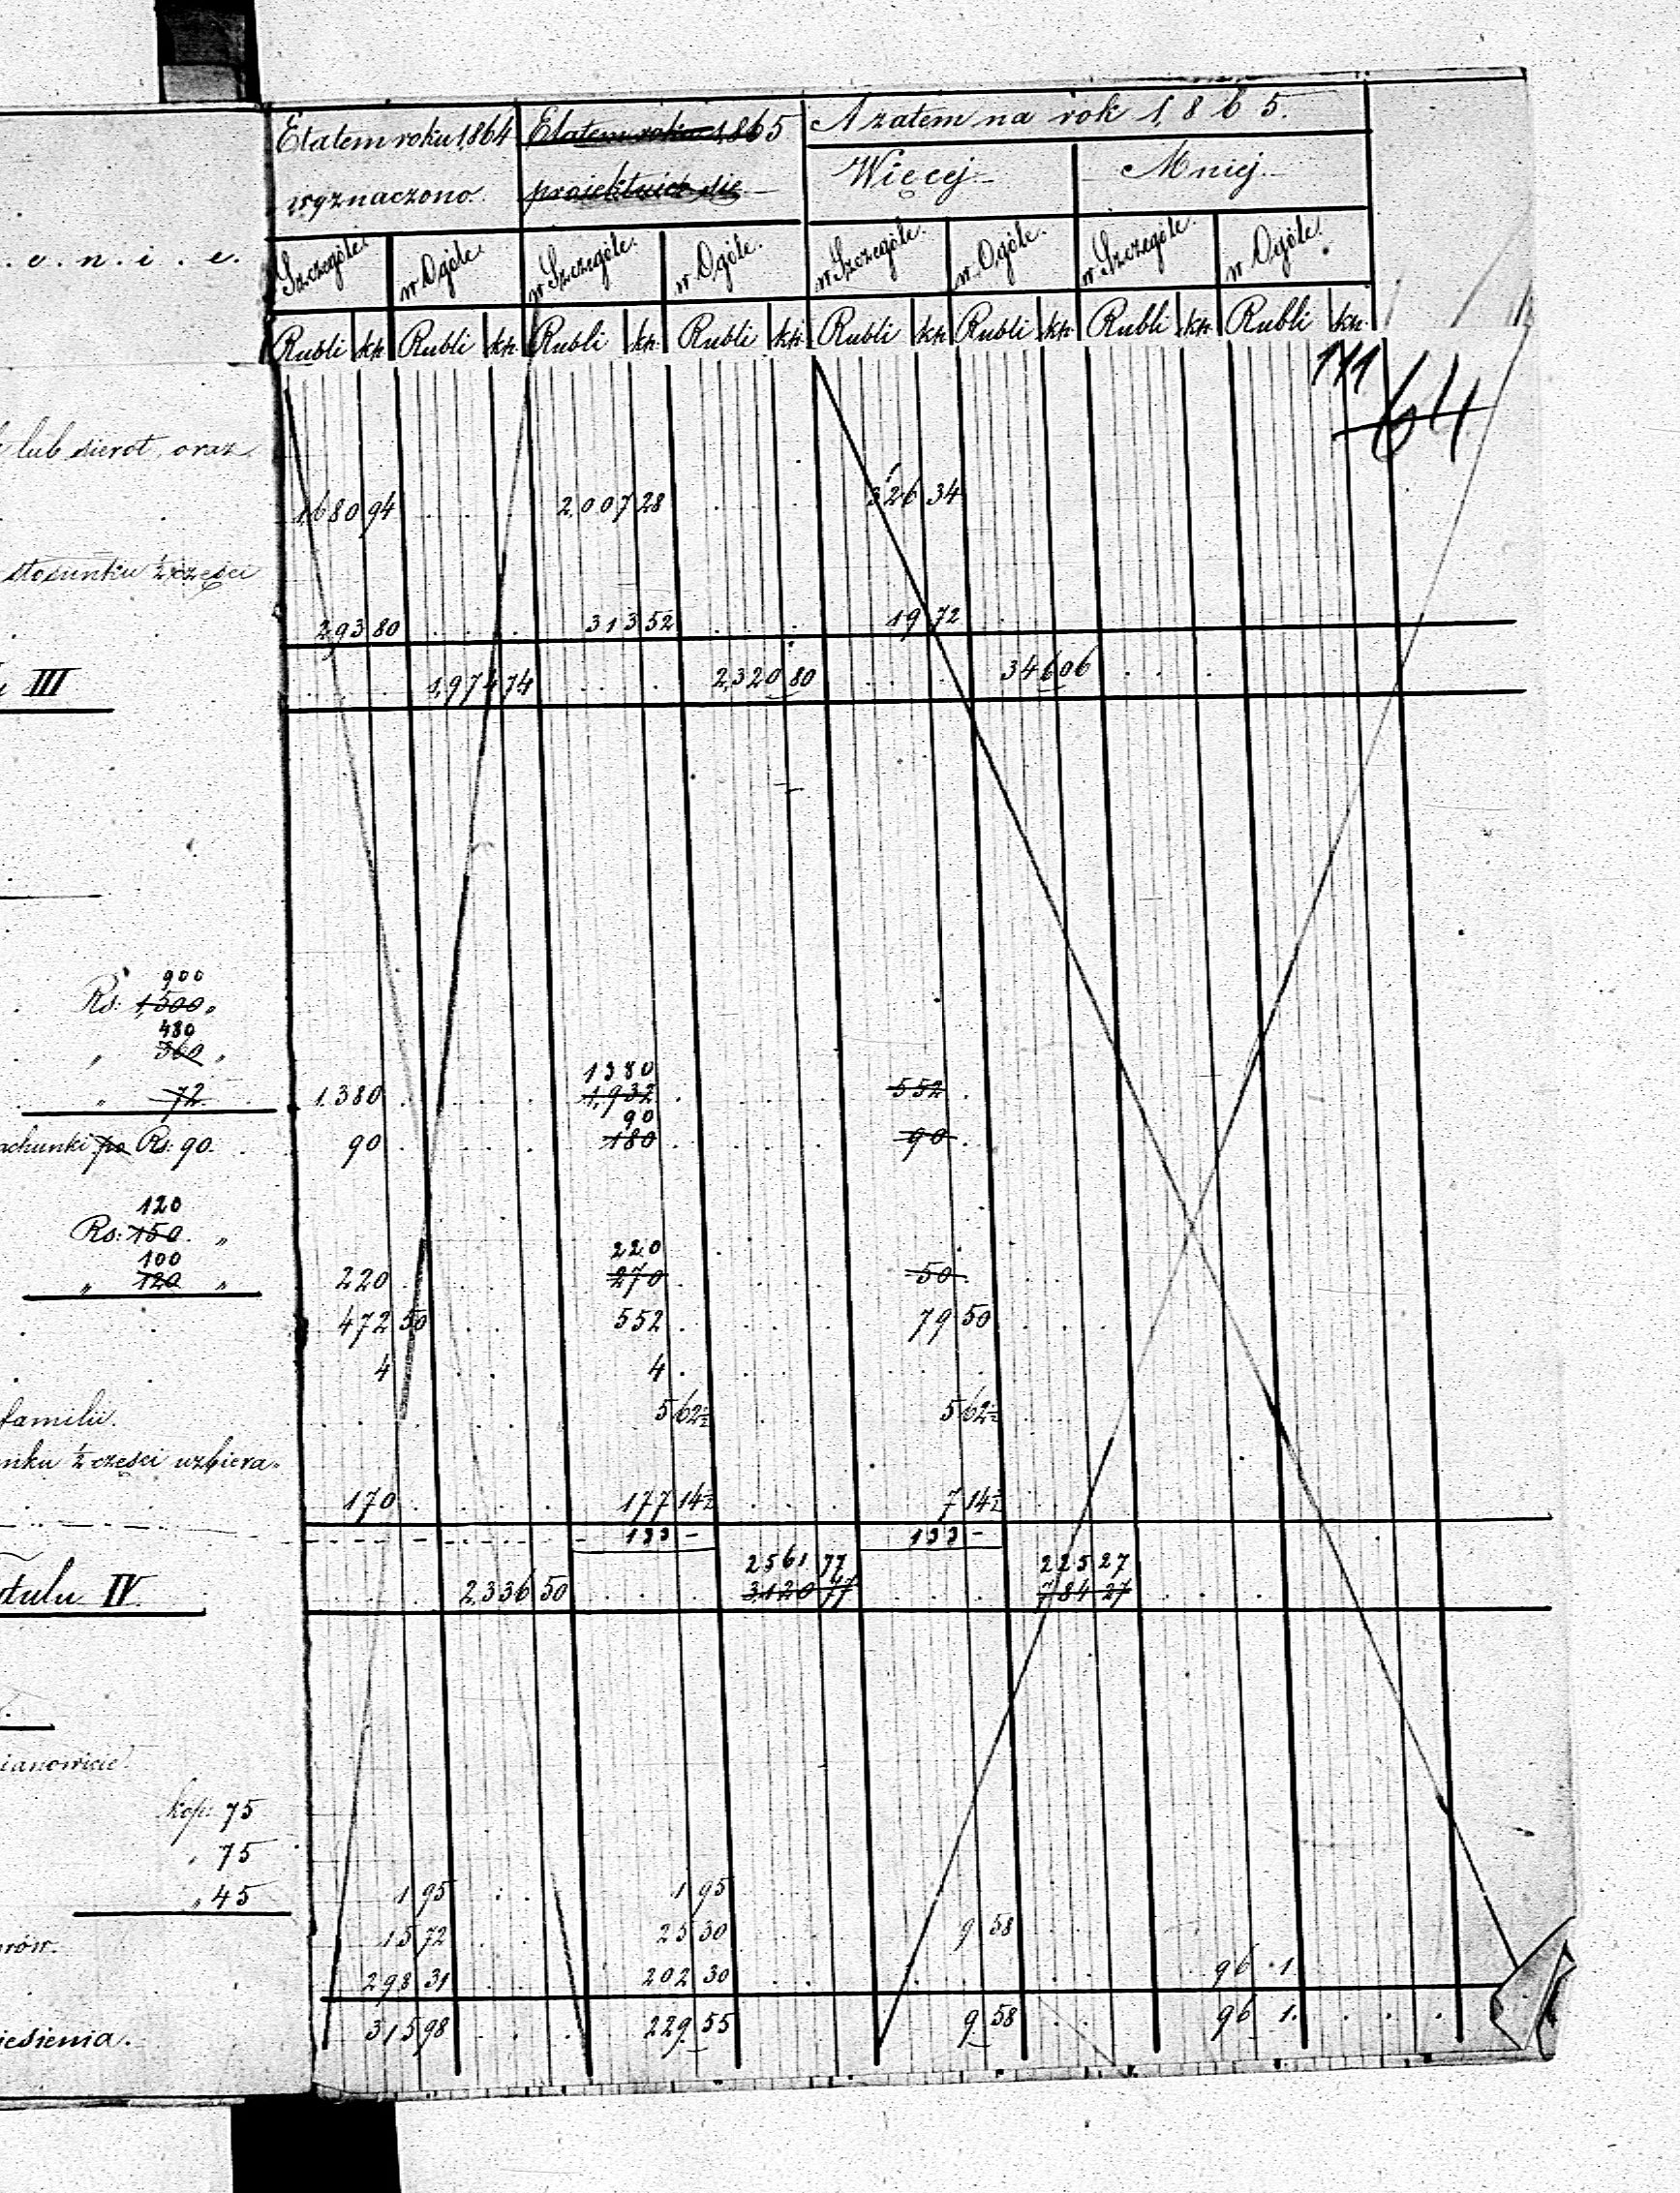 Etatem roku 1864 Etatem roku 1865 A zatem na rok 1,8 6 5.
wyznaczono. projektuje się Więcej Mniej
. e . n . i . e.
Szczególe. w Ogóle. w Szczególe. w Ogóle. w Szczególe. w Ogóle. w Szczególe. w Ogóle.
Rubli kp. Rubli kp. Rubli kp. Rubli kp. Rubli kp. Rubli kp. Rubli kp. Rubli kp.
171
64
lub sierot, oraz
1,680 94 2,007 28 326 34
stosunku ½ części
293 80 313 52 19 72
III 1,974 74 2,320 80 346 06
900
Rs. 1,500 „
480
„ 360 „
1380
„ 72 1.380 1,932 552
90
achunki po Rs. 90. 90 180 90
120
Rs: 150. „
100 220
„ 120 „ 220 270 50
472 50 552 79 50
4 4
familii. 5 62½ 5 62½
nku ½ części uzbiera-
170 177 14½ 7 14½
133 - 133 -
2561 77 225 27
tulu IV. 2,336 50 3,120 77 784 27
ianowicie.
kop. 75
„ 75
„ 45 1 95 1 95
rów. 15 72 25 30 9 58
298 31 202 30 96 1
iesienia. 315 98 229 55 9 58 96 1.